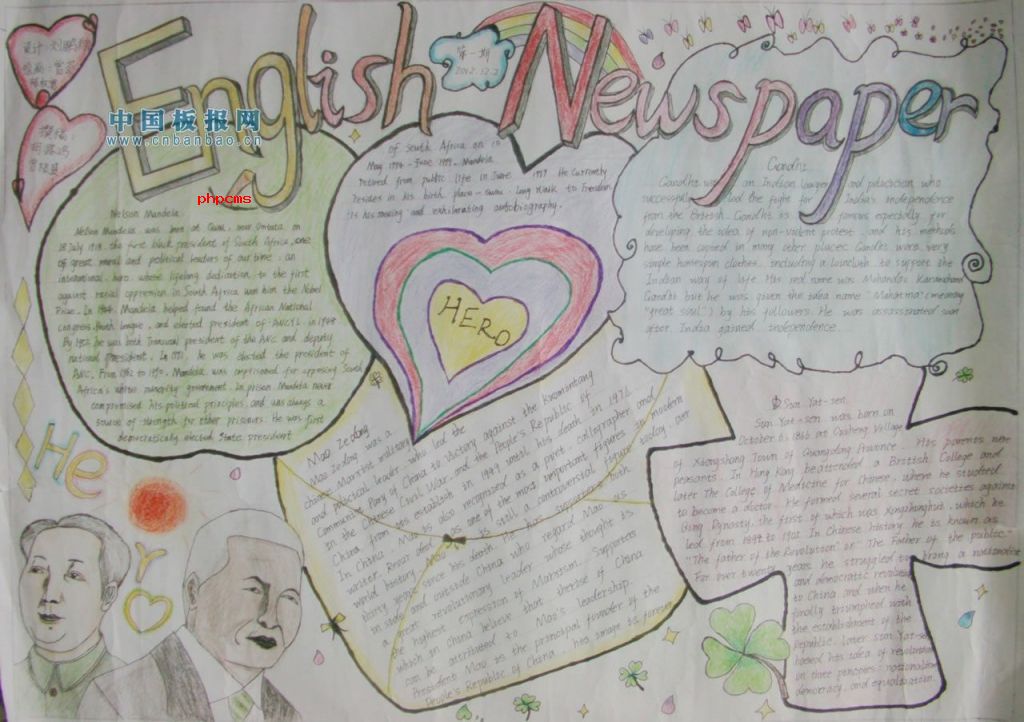 English Newspaper
第一期
2012.12.2
中国板报网
www.cnbanbao.cn
phpcms
Nelson Mandela
Nelson Mandela was born at Qunu, near Umtata on
18 July 1918. the first black president of South Africa, one
of great moral and political leaders of our time, an
international hero whose lifelong dedication to the first
against racial oppression in South Africa won him the Nobel
Prize. In 1944, Mandela helped found the African National
Congress Youth League, and elected president of ANCYL in 1948.
By 1952 he was both Transvaal president of the ANC and deputy
national president. In 1991, he was elected the president of
ANC. From 1962 to 1990, Mandela was imprisoned for opposing South
Africa's white minority government. In prison Mandela never
compromised his political principles, and was always a
source of strength for other prisoners. He was first
democratically elected State president
of South Africa on 10
May 1994 - June 1999. Mandela
retired from public life in June 1999. He Currently
resides in his birth place - Qunu. Long Walk to Freedom
is his moving and exhilarating autobiography.
HERO
Gandhi
Gandhi was an Indian lawyer and politician who
successfully led the fight for India's independence
from the British. Gandhi is famous especially for
developing the idea of non-violent protest, and his methods
have been copied in many other places. Gandhi wore very
simple homespun clothes, including a loincloth to support the
Indian way of life. His real name was Mohandas Karamchand
Gandhi but he was given the idea name "Mahatma" (meaning
"great soul") by his followers. He was assassinated soon
after India gained independence.
Mao Zedong
Mao Zedong was a
chinese Marxist military
and political leader, who led the
Communist Pary of China to victory against the Kuomintang
in the Chinese Civil War, and the People's Republic of
China from its establish in 1949 until his death in 1976
In China Mao is also recognized as a poet, calligrapher and
writer. Regarded as one of the most important figures in modern
world history, Mao is still a controversial figure today, over
thirty years since his death. He has supporters both
in state and outside China who regard Mao as
a great revolutionary leader whose thought is
the highest expression of Marxism. Supporters
which in China believe that therise of China
can be attributed to Mao's leadership.
President Mao is the principal founder of the
People's Republic of China. his image is forever
Sun Yat-sen
Sun Yat-sen was born on
October 6, 1866 at Cuiheng Village
of Xiangshang Town of Guangdong Province. His parents were
peasants. In Hong Kong he attended a British College and
later The College of Medicine for Chinese, where he studied
to become a doctor. He formed several secret societies against
Qing Dynasty, the first of which was Xingzhonghui, which he
led from 1894 to 1905. In Chinese history he is known as
"The father of the Revolution" or "The Father of the public."
For over twenty years he struggled to bring a nationalist
and democratic revolution
to China and when he
finally triumphed with
the establishment of the
republic later Sun Yat-sen
based his idea of revolution
on three principles: nationalism
democracy, and equalization.
Hero